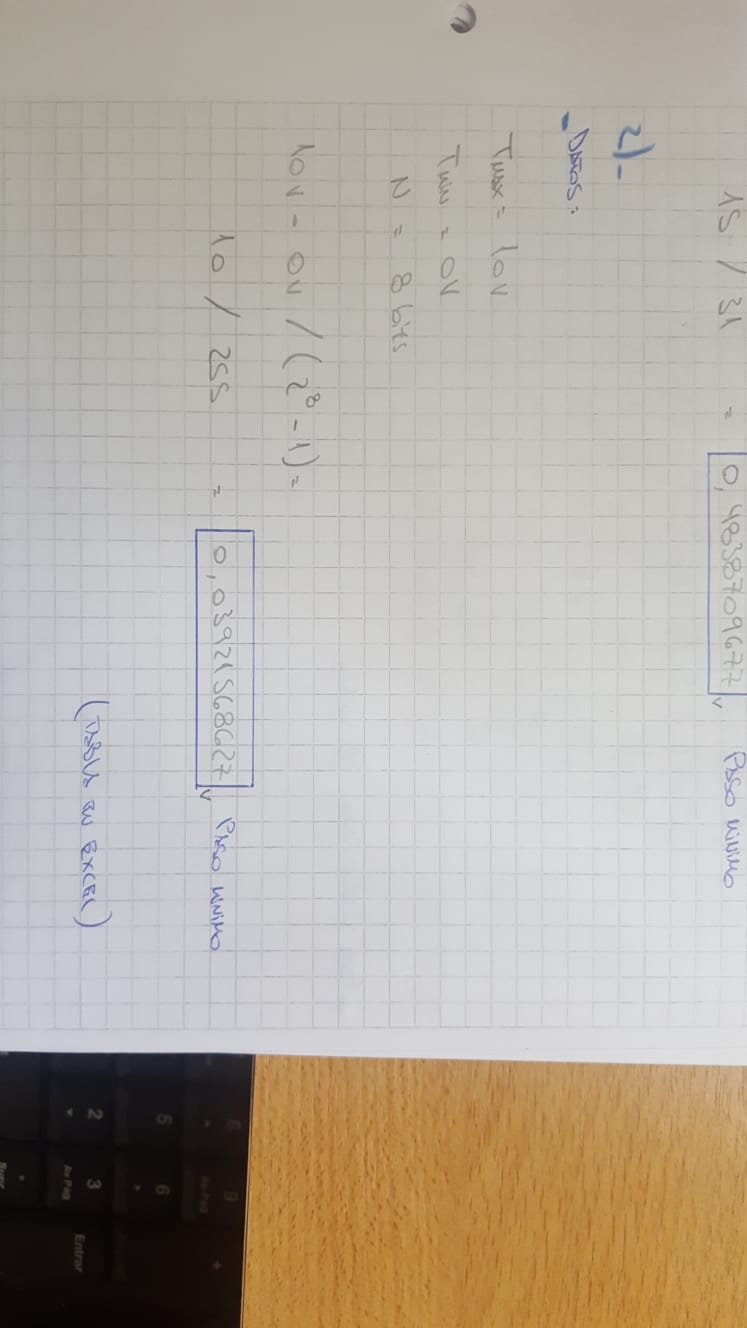 15 / 31 = 0,4838709677 v Paso minimo
2)-
- Datos:
Tmax = 10V
Tmin = 0V
N = 8 bits
10V - 0V / (2⁸ - 1) =
10 / 255 = 0,03921568627 v Paso minimo
(Tabla en Excel)
5
6
2
3
Av Pág
Entrar
+